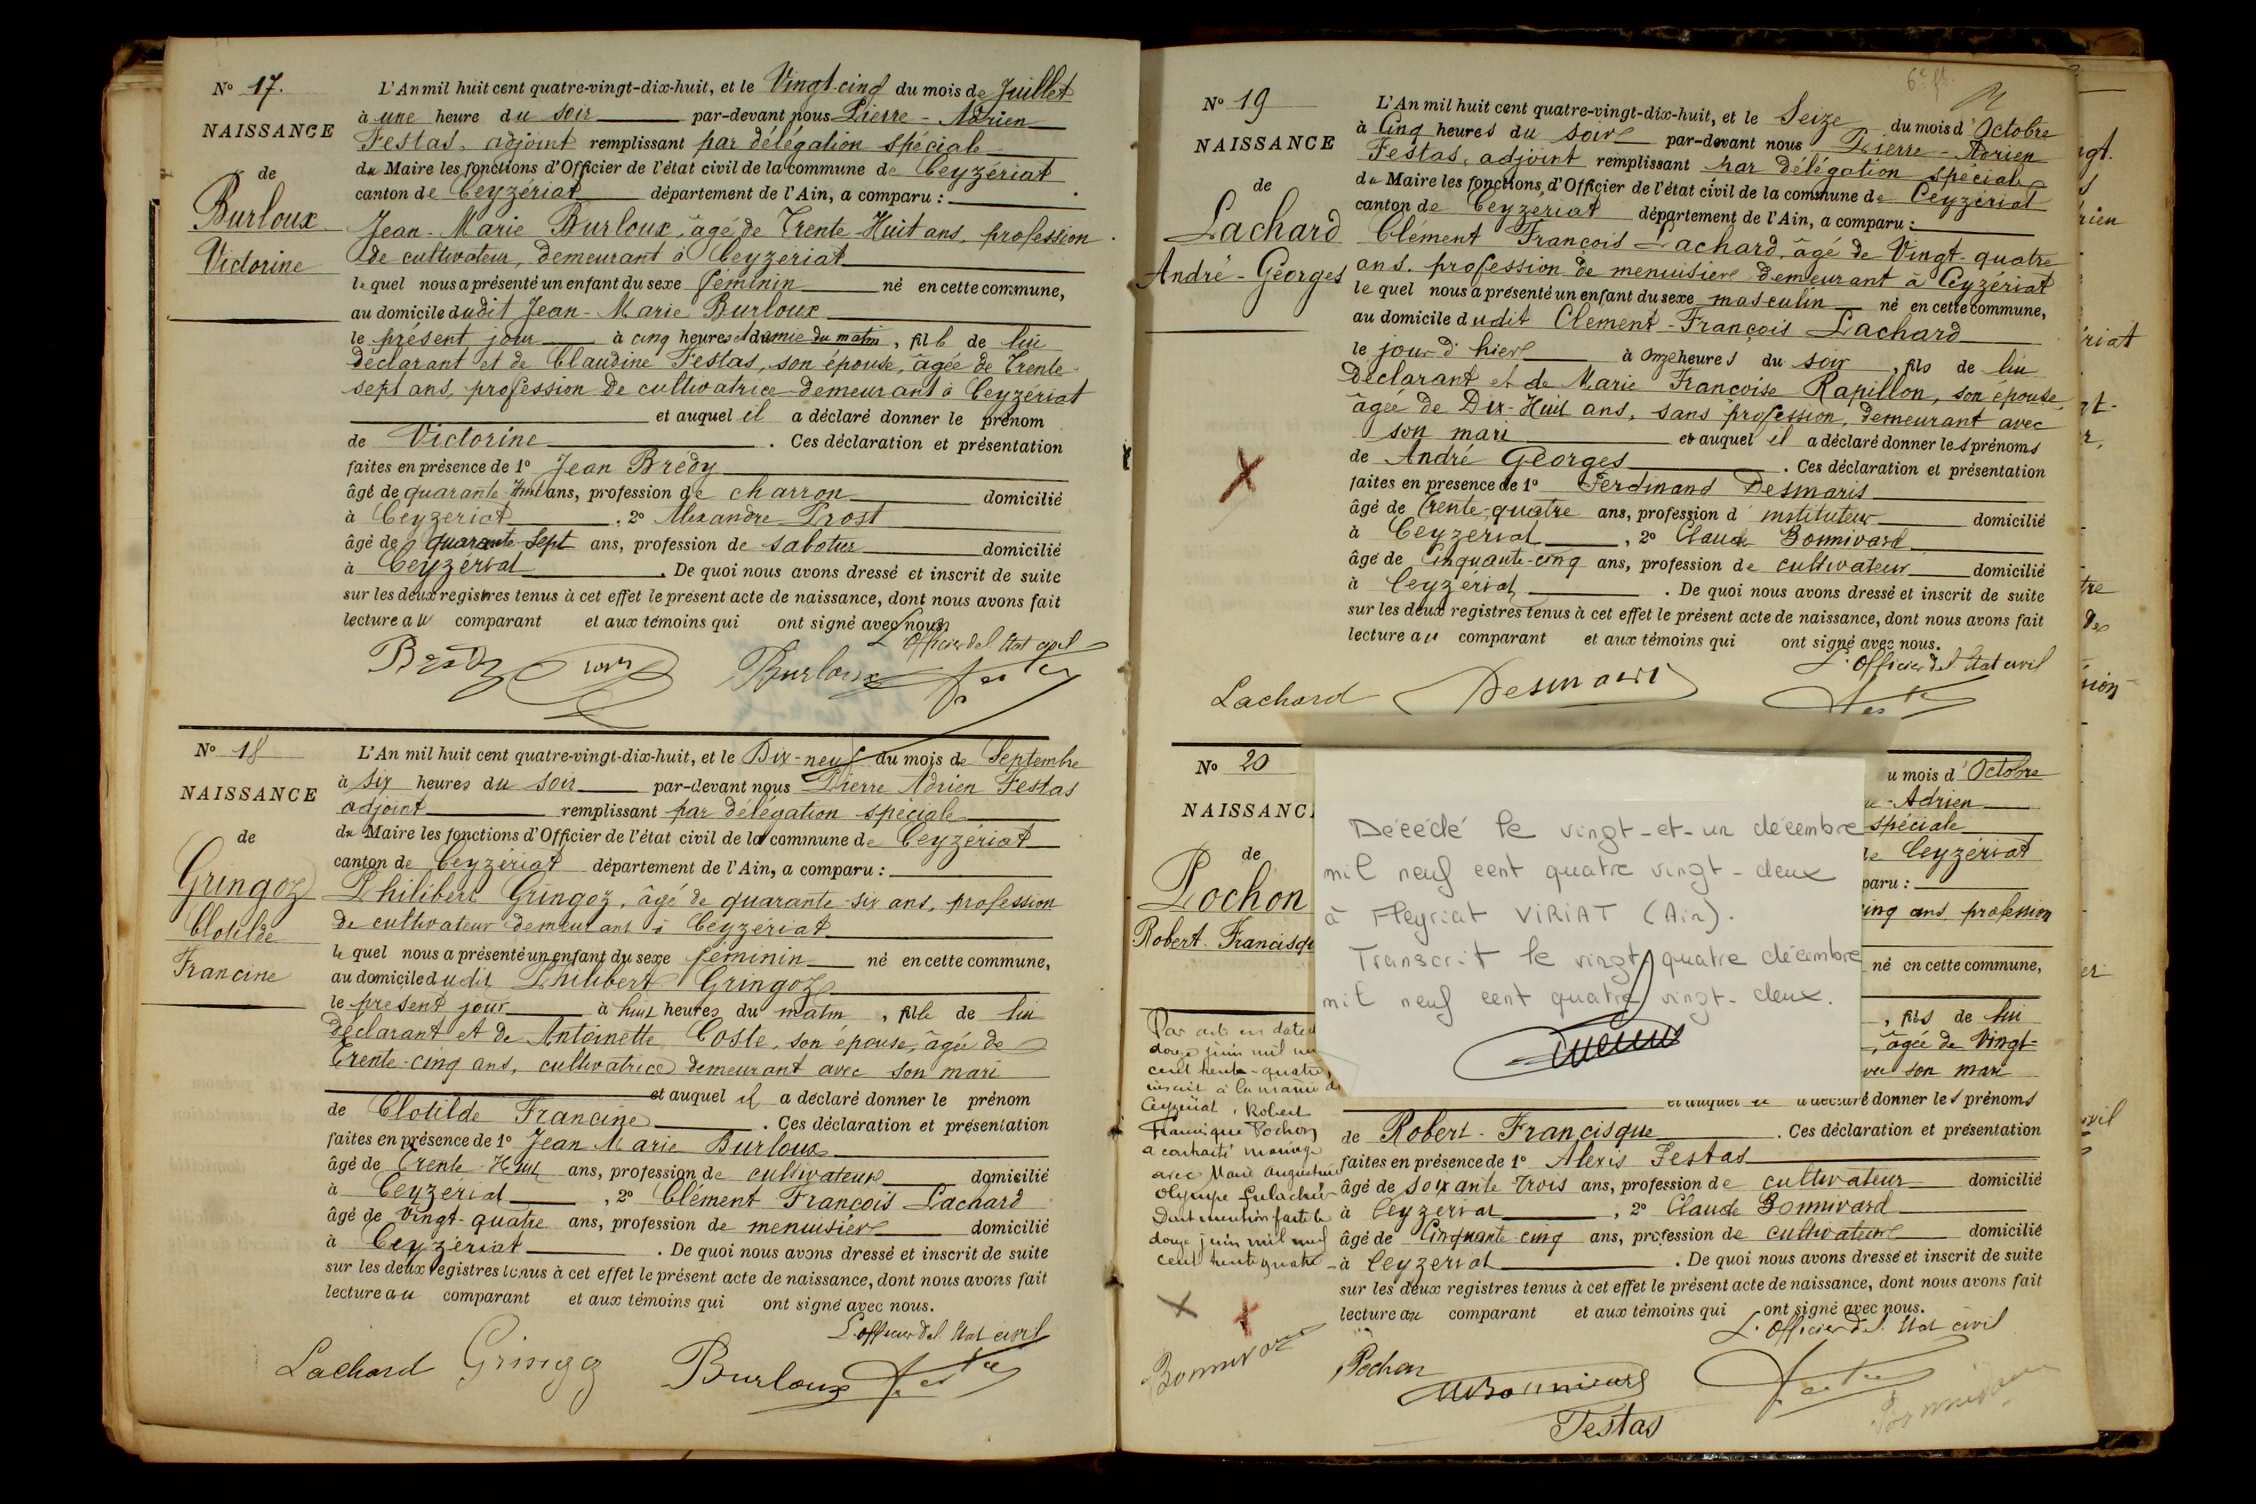 N° 17.
NAISSANCE
de
Burloux
Victorine
L'An mil huit cent quatre-vingt-dix-huit, et le Vingt-cinq du mois de Juillet
à une heure du soir par-devant nous Pierre - Adrien
Festas, adjoint remplissant par délégation spéciale
du Maire les fonctions d'Officier de l'état civil de la commune de Ceyzériat
canton de Ceyzériat département de l'Ain, a comparu :
Jean - Marie Burloux, âgé de Trente-Huit ans, profession
de cultivateur, demeurant à Ceyzeriat
le quel nous a présenté un enfant du sexe féminin né en cette commune,
au domicile dudit Jean - Marie Burloux
le présent jour à cinq heures et demie du matin, fille de lui
déclarant et de Claudine Festas, son épouse, âgée de Trente-
sept ans, profession de cultivatrice demeurant à Ceyzériat
et auquel il a déclaré donner le prénom
de Victorine. Ces déclaration et présentation
faites en présence de 1° Jean Brédy
âgé de quarante-Huit ans, profession de charron domicilié
à Ceyzeriat, 2° Alexandre Prost
âgé de quarante-sept ans, profession de sabotier domicilié
à Ceyzériat. De quoi nous avons dressé et inscrit de suite
sur les deux registres tenus à cet effet le présent acte de naissance, dont nous avons fait
lecture au comparant et aux témoins qui ont signé avec nous.
L'Officier de l'Etat civil
Brédy Burloux Festas
N° 18
NAISSANCE
de
Gringoz
Clotilde
Francine
L'An mil huit cent quatre-vingt-dix-huit, et le Dix-neuf du mois de Septembre
à six heures du soir par-devant nous Pierre Adrien Festas
adjoint remplissant par délégation spéciale
du Maire les fonctions d'Officier de l'état civil de la commune de Ceyzériat
canton de Ceyzériat département de l'Ain, a comparu :
Philibert Gringoz, âgé de quarante-six ans, profession
de cultivateur demeurant à Ceyzériat
le quel nous a présenté un enfant du sexe féminin né en cette commune,
au domicile dudit Philibert Gringoz
le présent jour à huit heures du matin, fille de lui
déclarant et de Antoinette Coste, son épouse, âgée de
Trente-cinq ans, cultivatrice demeurant avec son mari
et auquel il a déclaré donner le prénom
de Clotilde Francine. Ces déclaration et présentation
faites en présence de 1° Jean Marie Burloux
âgé de Trente-Huit ans, profession de cultivateur domicilié
à Ceyzériat, 2° Clément François Lachard
âgé de Vingt-quatre ans, profession de menuisier domicilié
à Ceyzériat. De quoi nous avons dressé et inscrit de suite
sur les deux registres tenus à cet effet le présent acte de naissance, dont nous avons fait
lecture au comparant et aux témoins qui ont signé avec nous.
L'officier de l'Etat civil
Lachard Gringoz Burloux Festas
N° 19
NAISSANCE
de
Lachard
André-Georges
L'An mil huit cent quatre-vingt-dix-huit, et le Seize du mois d'Octobre
à Cinq heures du soir par-devant nous Pierre - Adrien
Festas, adjoint remplissant par délégation spéciale
du Maire les fonctions d'Officier de l'état civil de la commune de Ceyzériat
canton de Ceyzériat département de l'Ain, a comparu :
Clément François Lachard, âgé de Vingt-quatre
ans. profession de menuisier demeurant à Ceyzériat
le quel nous a présenté un enfant du sexe masculin né en cette commune,
au domicile dudit Clement-François Lachard
le jour d'hier à onze heures du soir, fils de lui
déclarant et de Marie Françoise Rapillon, son épouse,
âgée de Dix-Huit ans, sans profession, demeurant avec
son mari et auquel il a déclaré donner les prénoms
de André Georges. Ces déclaration et présentation
faites en présence de 1° Ferdinand Desmaris
âgé de Trente quatre ans, profession d'instituteur domicilié
à Ceyzeriat, 2° Claude Bonnivard
âgé de Cinquante-cinq ans, profession de cultivateur domicilié
à Ceyzériat. De quoi nous avons dressé et inscrit de suite
sur les deux registres tenus à cet effet le présent acte de naissance, dont nous avons fait
lecture au comparant et aux témoins qui ont signé avec nous.
L'Officier de l'Etat civil
Lachard Desmaris Festas
N° 20
NAISSANC
de
Pochon
Robert-Francisqu
u mois d'Octobre
-Adrien
spéciale
Ceyzériat
paru :
cinq ans profession
né en cette commune,
, fils de lui
, âgée de Vingt-
son mari
donner les prénoms
Décédé le vingt-et-un décembre
mil neuf cent quatre vingt-deux
à Fleyriat VIRIAT (Ain).
Transcrit le vingt quatre décembre
mil neuf cent quatre vingt-deux.
Par acte en date du
douze juin mil neuf
cent trente-quatre,
inscrit à la mairie de
Ceyzériat, Robert
Francisque Pochon
a contracté mariage
avec Marie Augustine
Olympe
Dont mention faite le
douze juin mil neuf
cent trente quatre
de Robert-Francisque. Ces déclaration et présentation
faites en présence de 1° Alexis Festas
âgé de soixante trois ans, profession de cultivateur domicilié
à Ceyzeriat, 2° Claude Bonnivard
âgé de Cinquante-cinq ans, profession de cultivateur domicilié
à Ceyzeriat. De quoi nous avons dressé et inscrit de suite
sur les deux registres tenus à cet effet le présent acte de naissance, dont nous avons fait
lecture au comparant et aux témoins qui ont signé avec nous.
L'Officier de l'Etat civil
Pochon
Festas